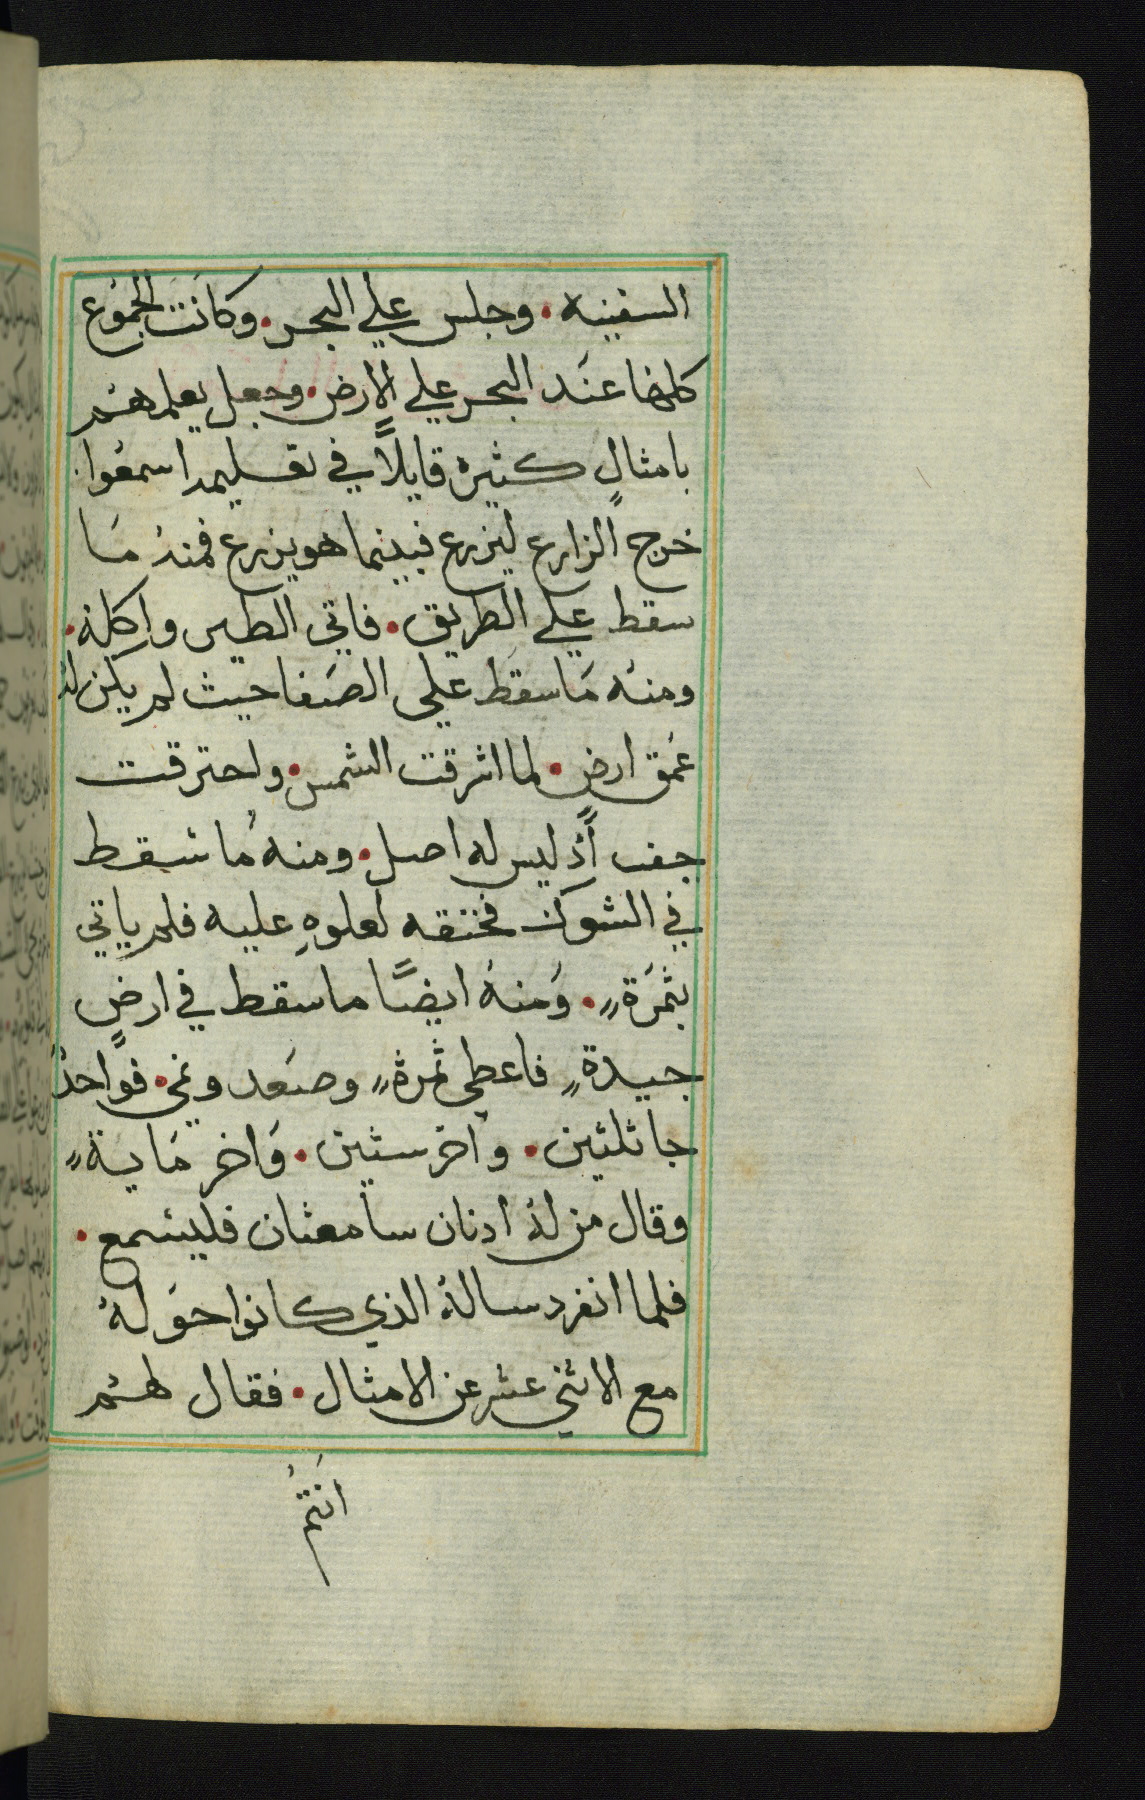 السفينه • وجلس علي البحر • وكانت الجموع
كلها عند البحر علي الارض • وجعل يعلمهم
بامثالٍ كثيرة قايلاً في تعليمه اسمعوا
خرج الزارع ليزرع فبينما هو يزرع فمنهُ مَا
سقط علي الطريق • فاتي الطير واكلهُ •
ومنهُ مَا سقَط علي الصَفا حيث لم يكن لهُ
عُمق ارضٍ • لما اشرقت الشمس • واحترقت
جف اذ ليس له اصل • ومنهُ ما سقط
في الشوك فخنقه لعلوهِ عليه فلم ياتي
بثمَرة • وَمنهُ ايضًا ما سقط في ارضٍ
جيدةٍ فاعطي ثمرةً وصَعد ونمي • فواحدٌ
جا ثلثين • واخر ستين • وَاخر مَاية
وقال من لهُ ادنان سامعتان فليسمع •
فلما انفرد سالهُ الذي كانوا حوَلهُ
مع الاثني عشر عن الامثال • فقال لهم
انَتمُ